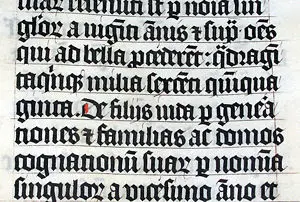 glor a vigīti ānis ⁊ sup̄ om̄s
qui ad bella p̄cederēt: q̄dragī
ta quinq̄ milia sexcēti quinqua
ginta. De filijs iuda p̱ geneā
tiones ⁊ familias ac domos
cognationū suar p̱ nomīa
singulor a vicesimo āno et